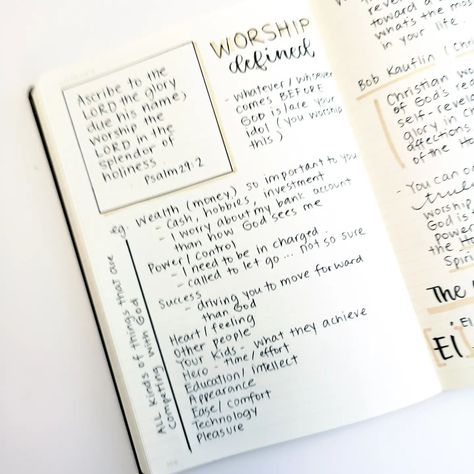 WORSHIP
defined
Ascribe to the
LORD the glory
due his name;
worship the
LORD in the
splendor of
holiness.
Psalm 29:2
- whatever/whoever
comes BEFORE
God is/are your
idol (you worship
this)
eg.
Wealth (money) so important to you
- cash, hobbies, investment
- I worry about my bank account
than how God sees me
Power/control
- I need to be in charge
- called to let go... not so sure
Success
- driving you to move forward
than God
Heart/feeling
Other people
Your Kids - what they achieve
Hero - time/effort
Education/intellect
Appearance
Ease/comfort
Technology
Pleasure
All kinds of things that are
competing with God
toward a
what's the mos
in your life.
Bob Kauflin (
Christian wo
of God's rea
self-reve
glory in c
affections
of the Ho
- You can o
tru
worship,
God is
power
the
Spiri
The
• El
[El